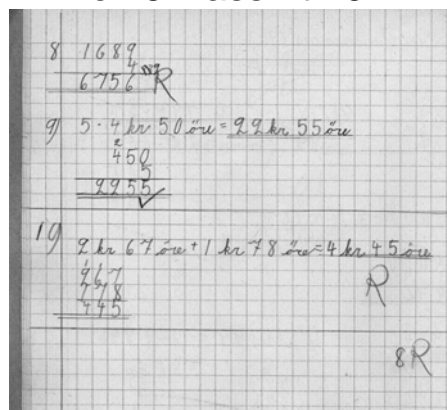 8 1689
4
6756 R
9) 5 · 4 kr 50 öre = 22 kr 55 öre
2
450
5
2255
10) 2 kr 67 öre + 1 kr 78 öre = 4 kr 45 öre
267
178
445
R
8R